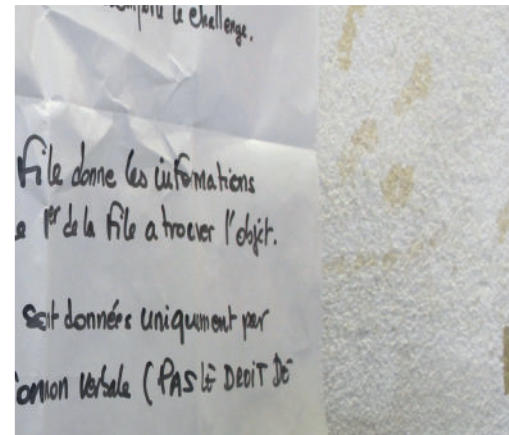 le challenge.
File donne les informations
1er de la file a trover l'objet.
soit données uniquement par
verbale (PAS LE DROIT DE